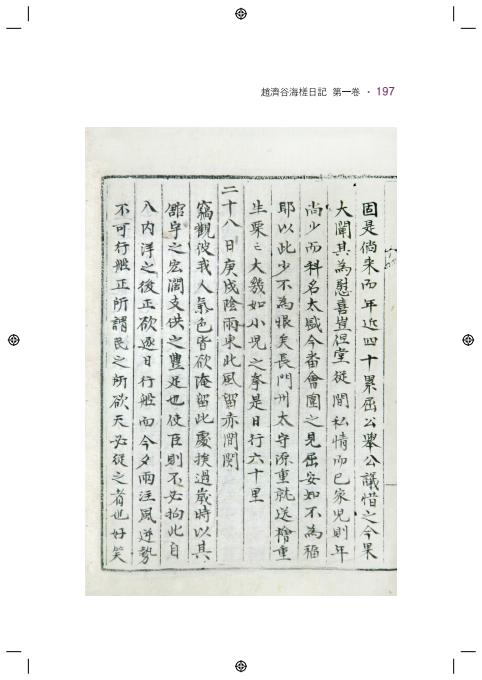 趙濟谷海槎日記 第一卷 · 197
固是倘来而年近四十累屈公擧公議惜之今果
大闡其為慰喜豈但堂從間私情而已家児則年
尚少而科名太盛今番會圍之見屈安知不為福
耶以此少不為恨矣長門州太守源重就送檜重
生栗大如小児之拳是日行六十里
二十八日庚戌陰雨東北風留赤間関
竊觀彼我人氣色皆欲淹留此處挨過歳時以其
舘宇之宏濶支供之豊足也使臣則不必拘此自
入内洋之後正欲逐日行船而今夕雨注風逆勢
不可行船正所謂民之所欲天必從之者也好笑